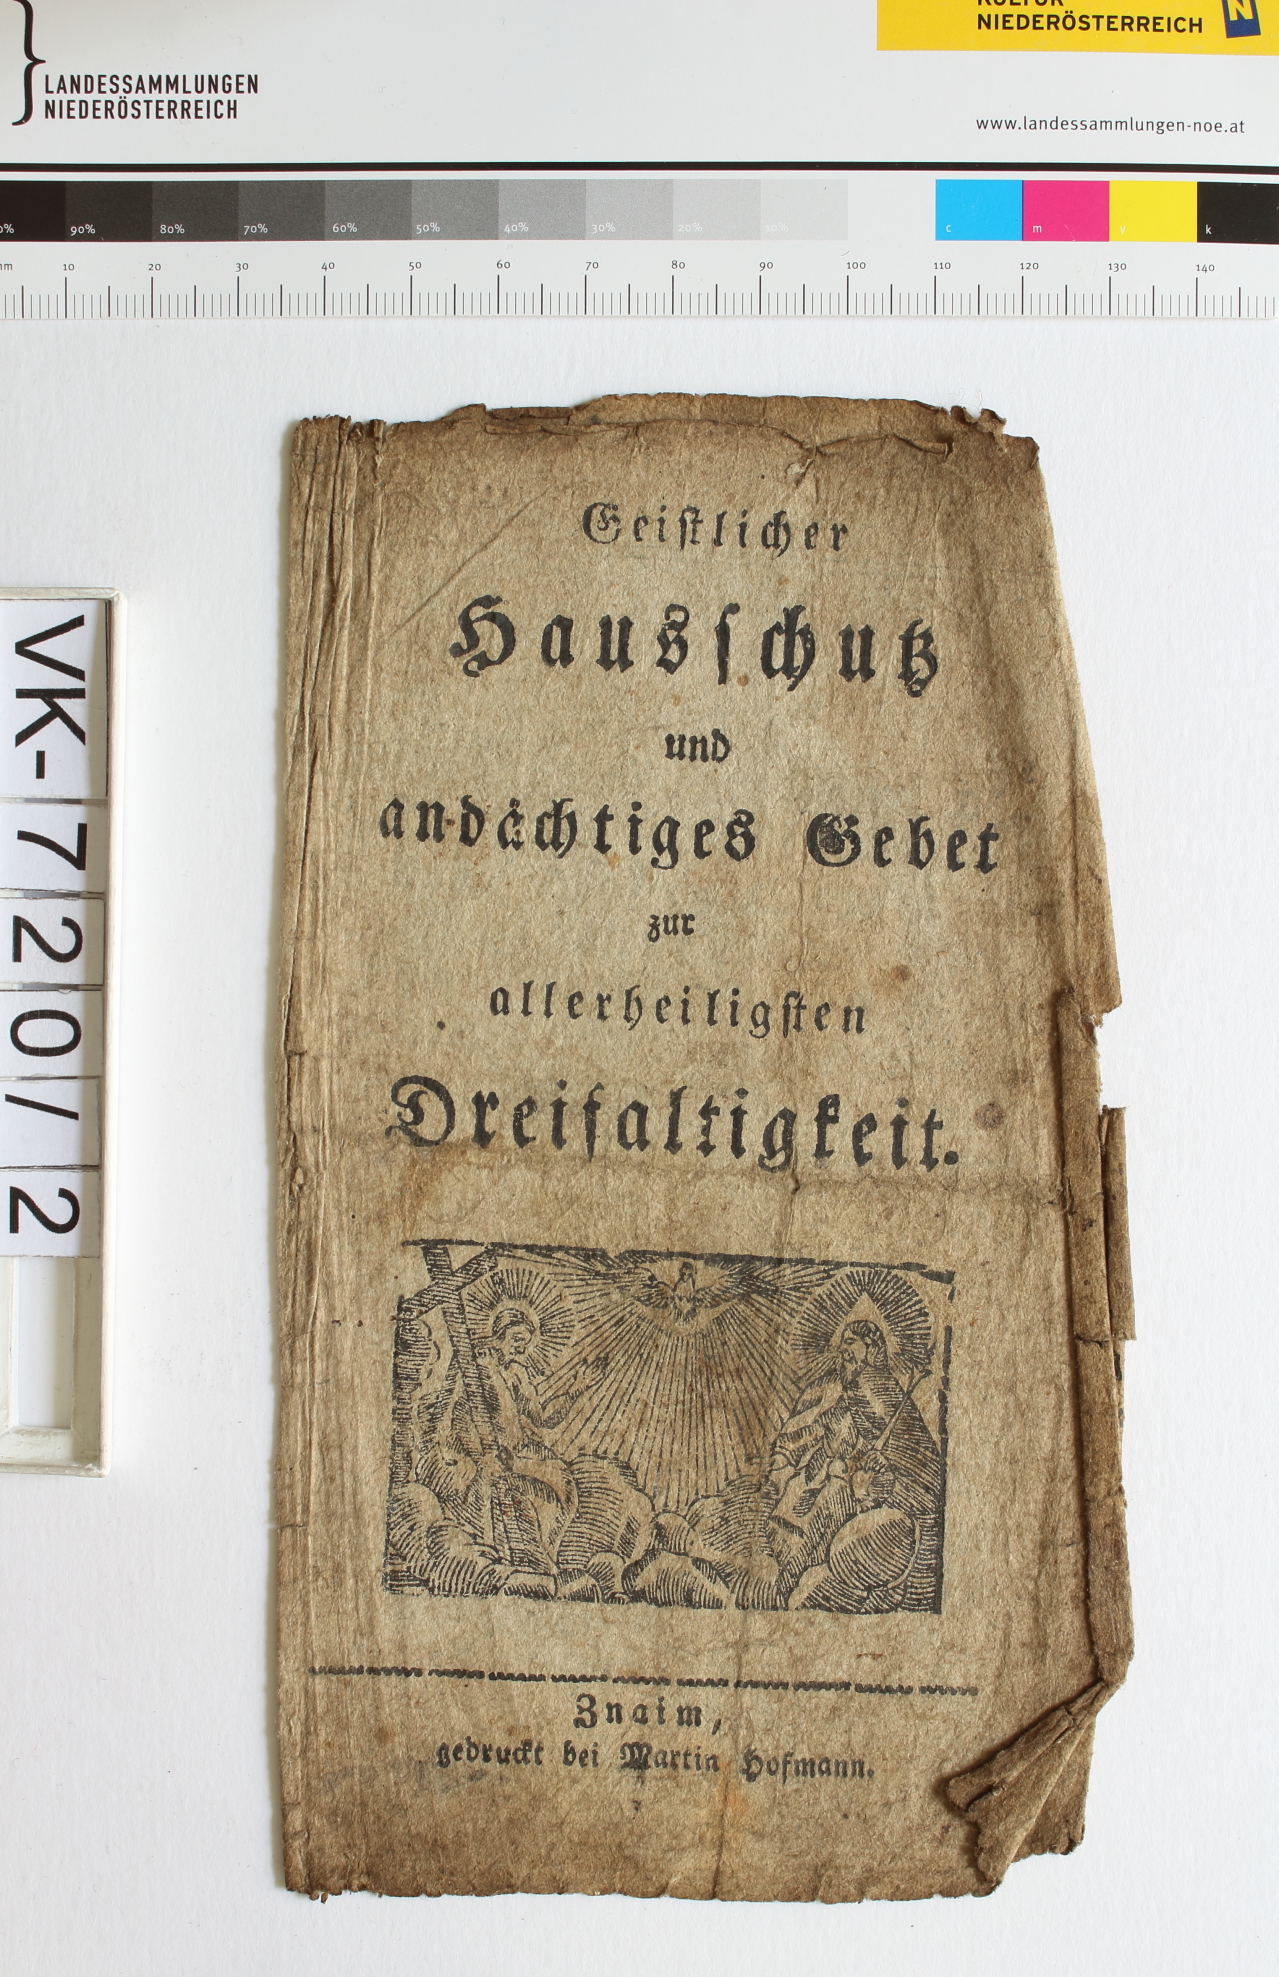 KULTUR
NIEDERÖSTERREICH
N
LANDESSAMMLUNGEN
NIEDERÖSTERREICH
www.landessammlungen-noe.at
90% 80% 70% 60% 50% 40% 30% 20% 10% c m y k
mm 10 20 30 40 50 60 70 80 90 100 110 120 130 140
VK-720/2
Geiſtlicher
Hausſchutz
und
andächtiges Gebet
zur
allerheiligſten
Dreifaltigkeit.
Znaim,
gedruckt bei Martin Hofmann.